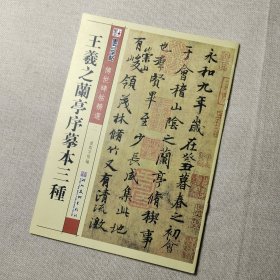 永和九年歲在癸丑暮春之初會
于會稽山陰之蘭亭脩稧事
也群賢畢至少長咸集此地
有崇山峻領茂林脩竹又有清流激
傳世碑帖精選
王羲之蘭亭序摹本三種